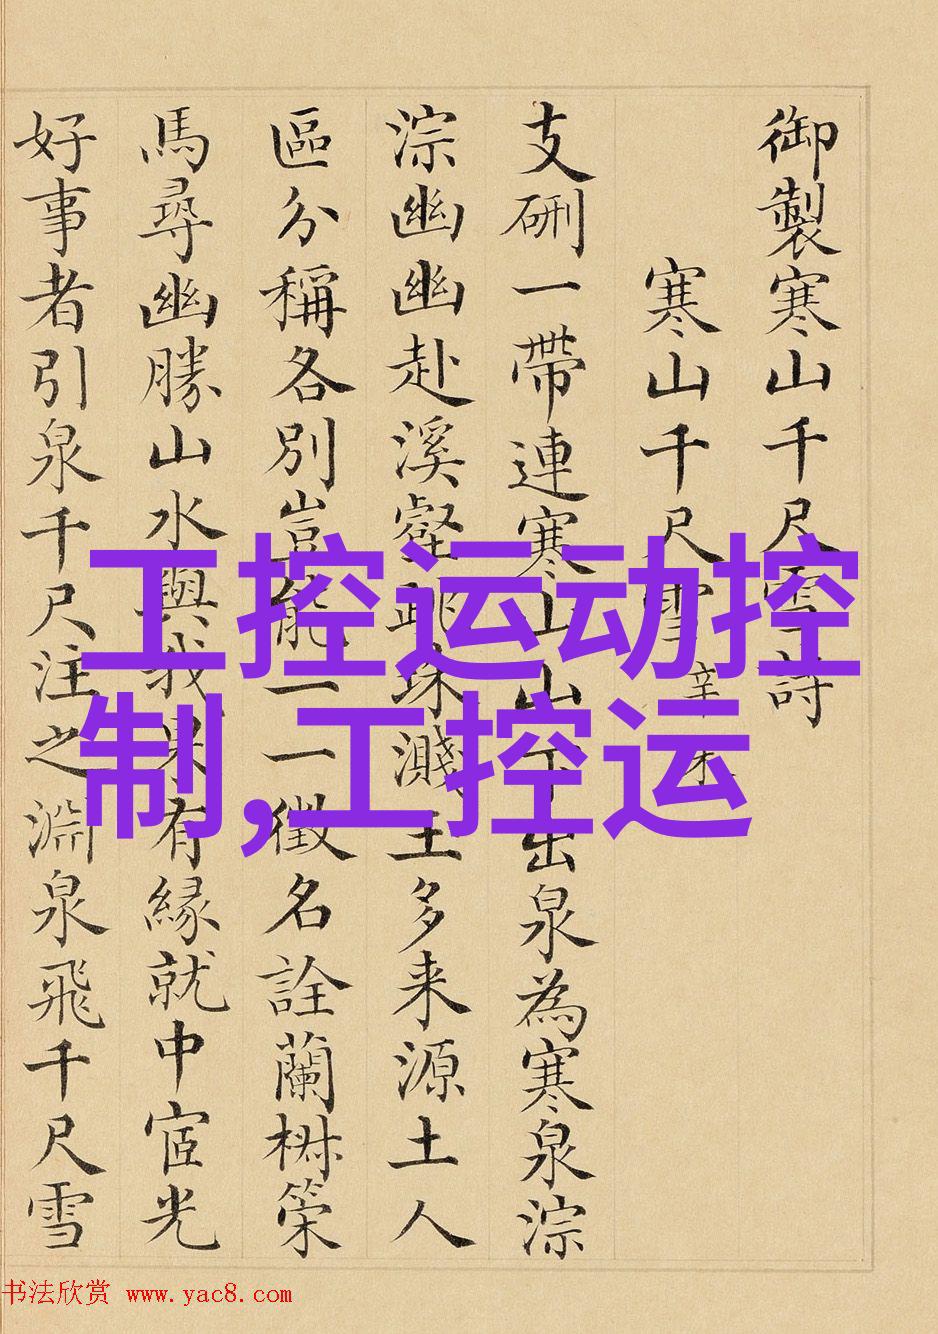 御製寒山千尺雪詩
寒山千尺雪 辛未
支硎一帶連寒山山千出泉為寒泉淙
淙幽幽赴溪壑跳珠濺玉多来源土人
區分稱各別豈能一一徵名詮蘭橁策
馬尋幽勝山水與我果有緣就中宧光
好事者引泉千尺注之淵泉飛千尺雪
工控运动控
制,工控运
书法欣赏 www.yac8.com